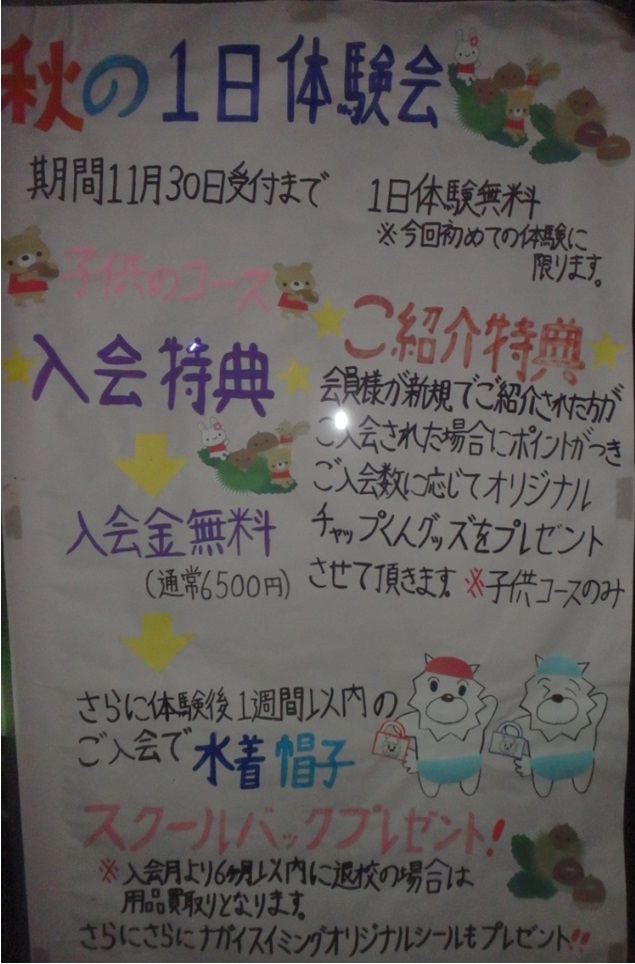 秋の1日体験会
期間11月30日受付まで
1日体験無料
※今回初めての体験に
限ります。
子供のコース
入会特典
入会金無料
(通常6500円)
ご紹介特典
会員様が新規でご紹介された方が
ご入会された場合にポイントがつき
ご入会数に応じてオリジナル
チャップくんグッズをプレゼント
させて頂きます。※子供コースのみ
さらに体験後1週間以内の
ご入会で水着帽子
スクールバックプレゼント!
※入会月より6ヶ月以内に退校の場合は
用品買取りとなります。
さらにさらにナガイスイミングオリジナルシールもプレゼント!!